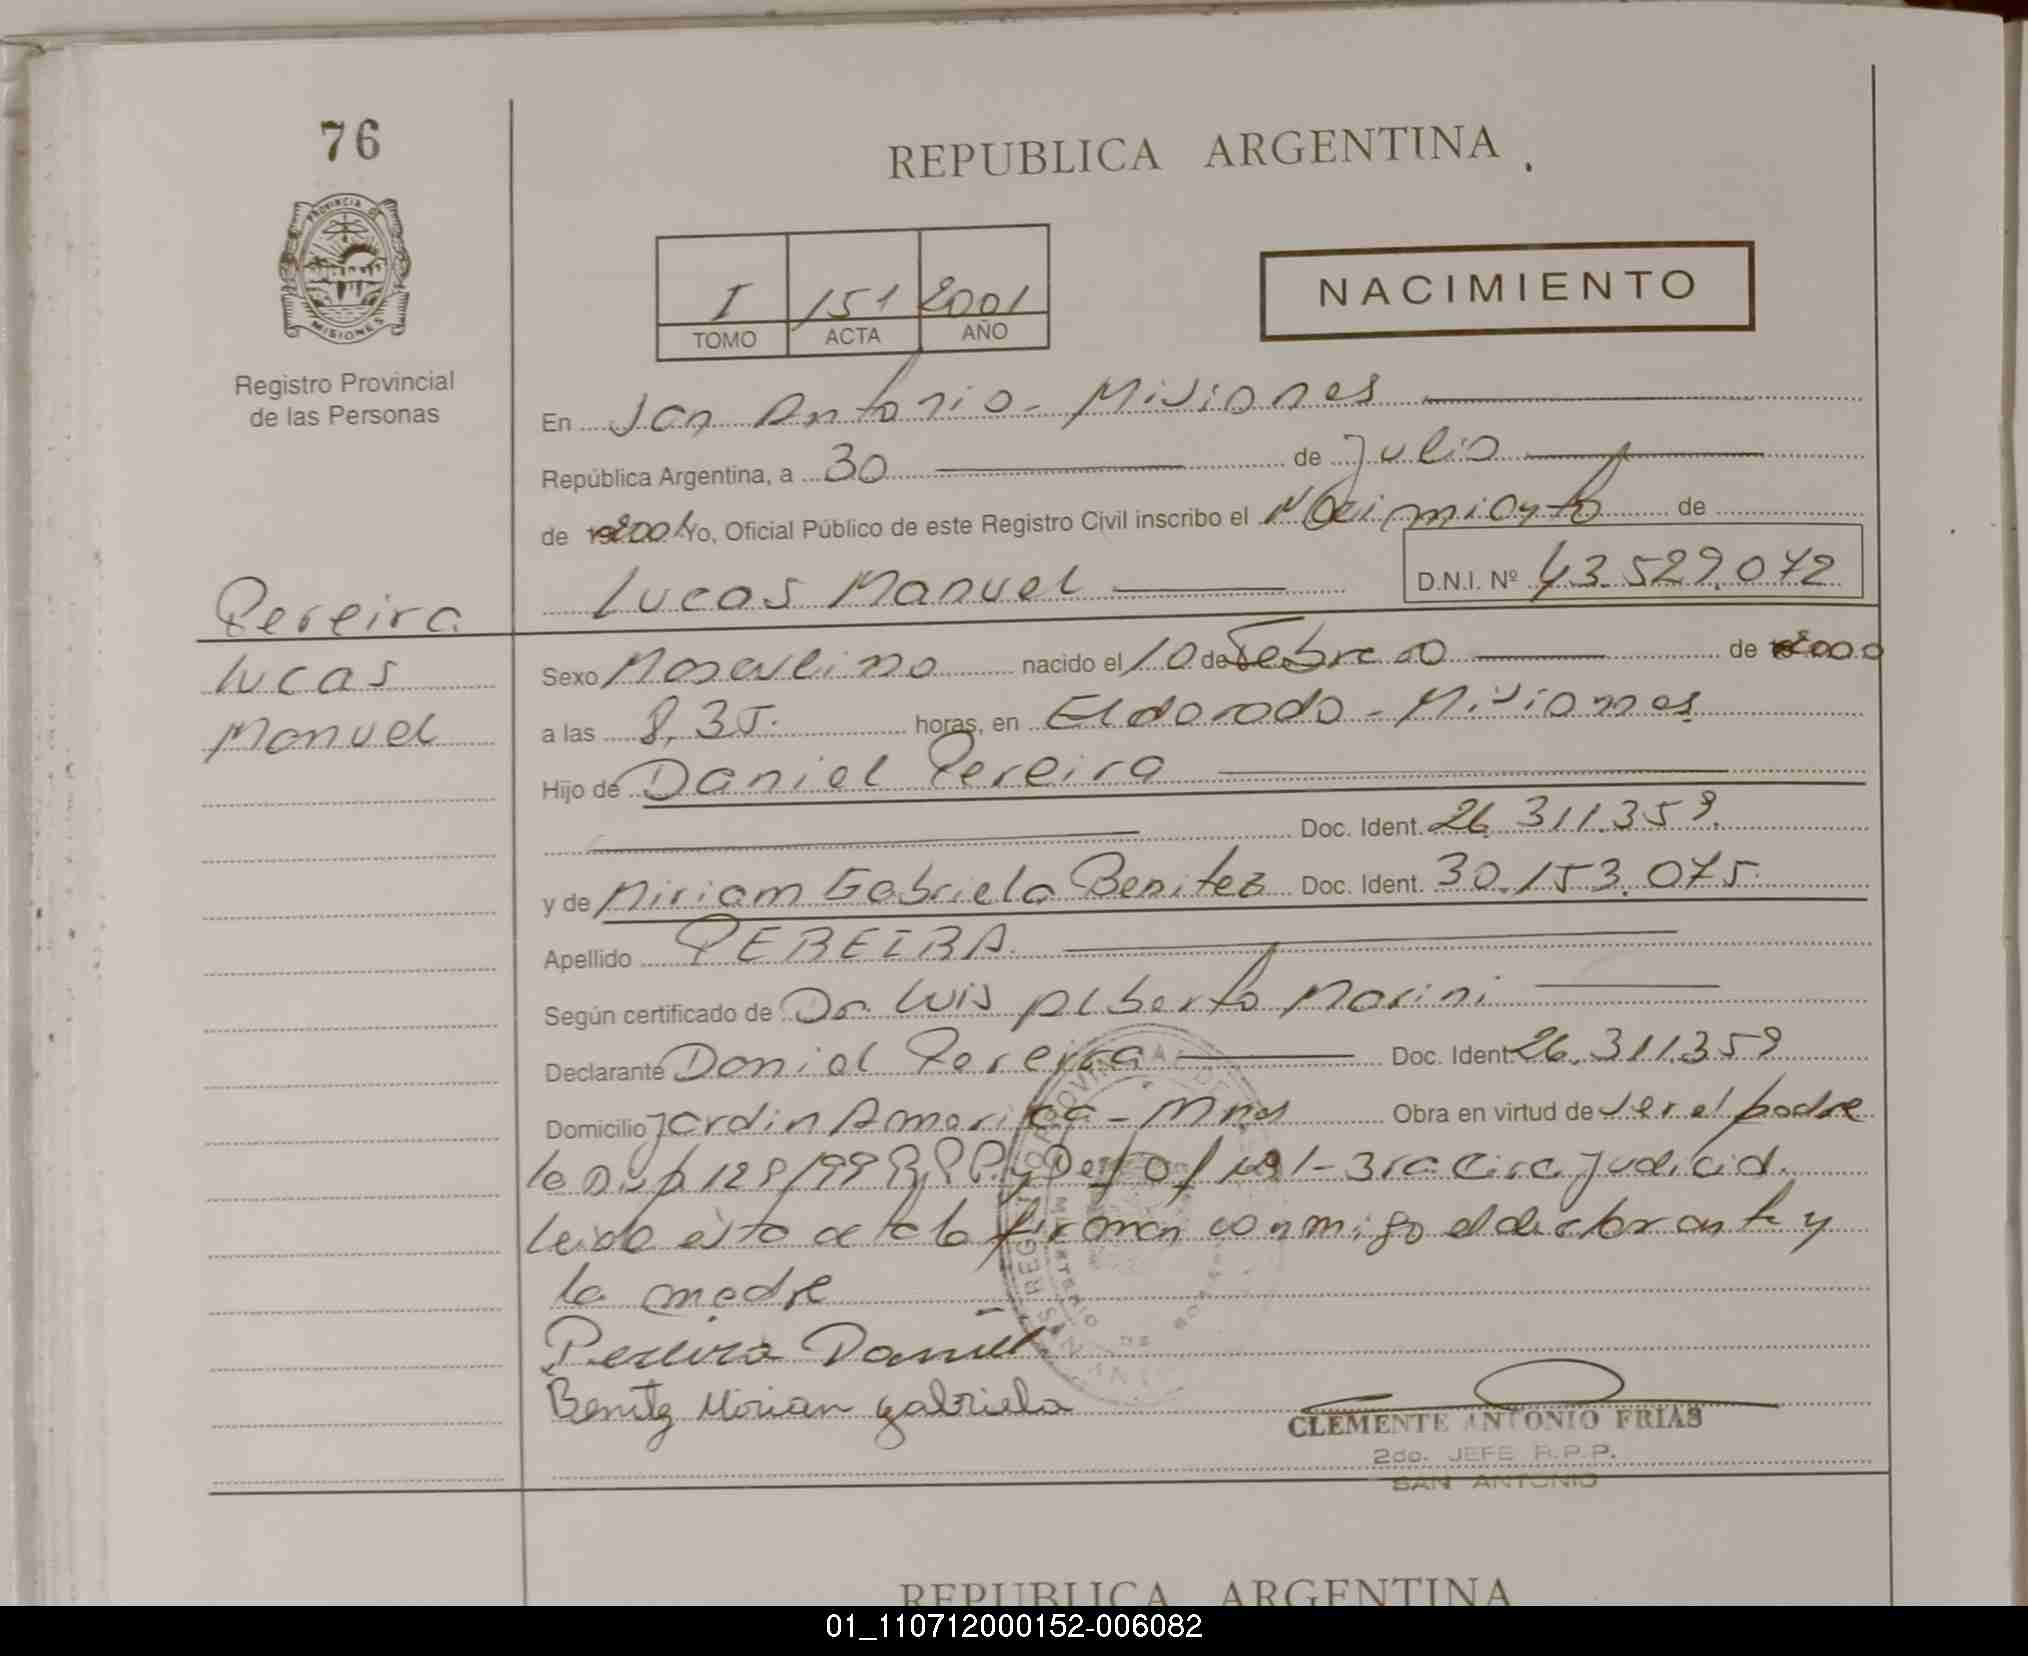 76
REPUBLICA ARGENTINA
PROVINCIA DE
MISIONES
Registro Provincial
de las Personas
I 151 2001
TOMO ACTA AÑO
NACIMIENTO
En San Antonio - Misiones
República Argentina, a 30 de Julio
de 2001 Yo, Oficial Público de este Registro Civil inscribo el Nacimiento de
Lucas Manuel D.N.I. Nº 43.529.072
Pereira
Lucas
Manuel
Sexo Masculino nacido el 10 de Febrero de 2000
a las 8,35. horas, en Eldorado - Misiones
Hijo de Daniel Pereira
Doc. Ident. 26.311.359.
y de Miriam Gabriela Benitez Doc. Ident. 30.153.075.
Apellido PEREIRA
Según certificado de Dr. Luis Alberto Marini
Declarante Daniel Pereira Doc. Ident. 26.311.359
Domicilio Jardin America - Mnes Obra en virtud de ser el padre
la Disp 128/99 R.P.P. y 3ra Circ. Judicial.
leida esta acta la firman conmigo el declarante y
la madre
Pereira Daniel
Benitz Mirian gabriela
CLEMENTE ANTONIO FRIAS
2do. JEFE R.P.P.
SAN ANTONIO
REPUBLICA ARGENTINA
01_110712000152-006082